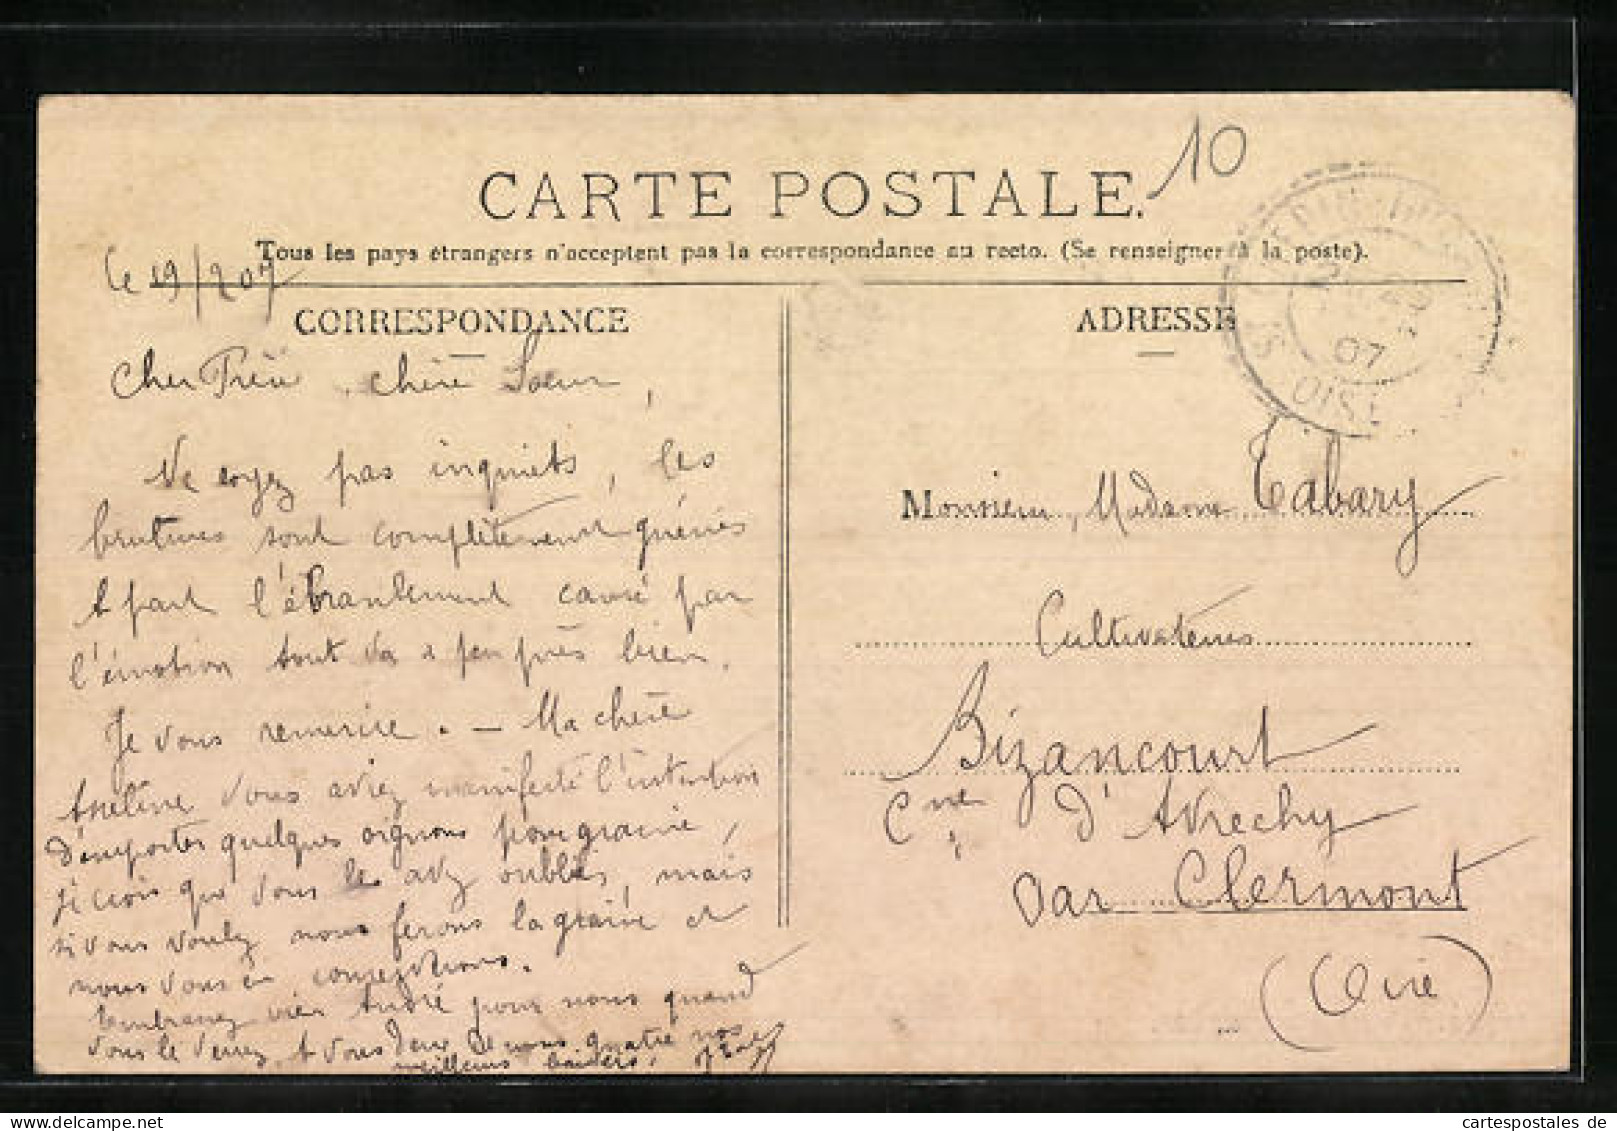 CARTE POSTALE.
10
Tous les pays étrangers n'acceptent pas la correspondance au recto. (Se renseigner à la poste).
Le 19/2 07
CORRESPONDANCE
Cher Frère, chère Soeur,
Ne soyez pas inquiets, les
brulures sont complètement guéries
A part l'ébranlement causé par
l'émotion tout va a peu près bien.
Je vous remercie. — Ma chère
vous aviez manifesté l'intention
d'emporter quelques oignons pour graine,
je crois que vous les avez oubliés, mais
si vous voulez nous ferons la graine et
nous vous en conserverons.
Embrassez bien André pour nous quand
vous le verrez. A vous deux de nous quatre nos
meilleurs baisers.
ADRESSE
07
OISE
Monsieur, Madame Tabary
Cultivateurs
Bizancourt
Cne d'Avrechy
par Clermont
(Oise)
cartespostales de
cartespostales.de